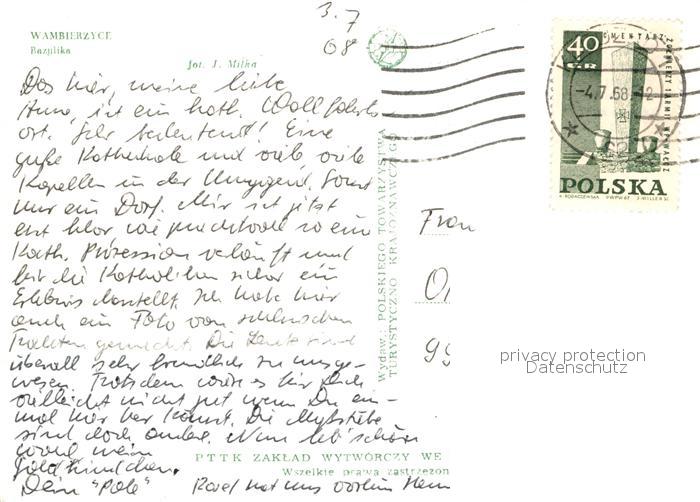 WAMBIERZYCE
Bazylika
fot. J. Milka
3.7
68
Das hier, meine liebe
Anna, ist ein kath. Wallfahrts
ort. Sehr bedeutend! Eine
große Kathedrale und viele viele
Kapellen in der Umgegend. Sonst
nur ein Dorf. Mir ist jetzt
erst klar wie prachtvoll so ein
Kath. Prozession verläuft und
für die Katholiken sicher ein
Erlebnis darstellt. Ich habe hier
auch ein Foto von schlesischen
Trachten gemacht. Die Leute sind
überall sehr freundlich zu uns ge-
wesen. Trotzdem wäre es für Dich
vielleicht nicht gut wenn Du ein-
mal hier her kommst. Die Maßstäbe
sind doch andere. Nun leb' schön
wohl mein
Goldkindchen.
Dein "Pole"
hat uns
Wydaw. POLSKIEGO TOWARZYSTWA
TURYSTYCZNO KRAJOZNAWCZEGO
PTTK ZAKŁAD WYTWÓRCZY WE
Wszelkie prawa zastrzeżon
Frau
40
GR
CMENTARZ ŻOŁNIERZY ARMII
-4.7.68-12
POLSKA
PWPW 67
privacy protection
Datenschutz